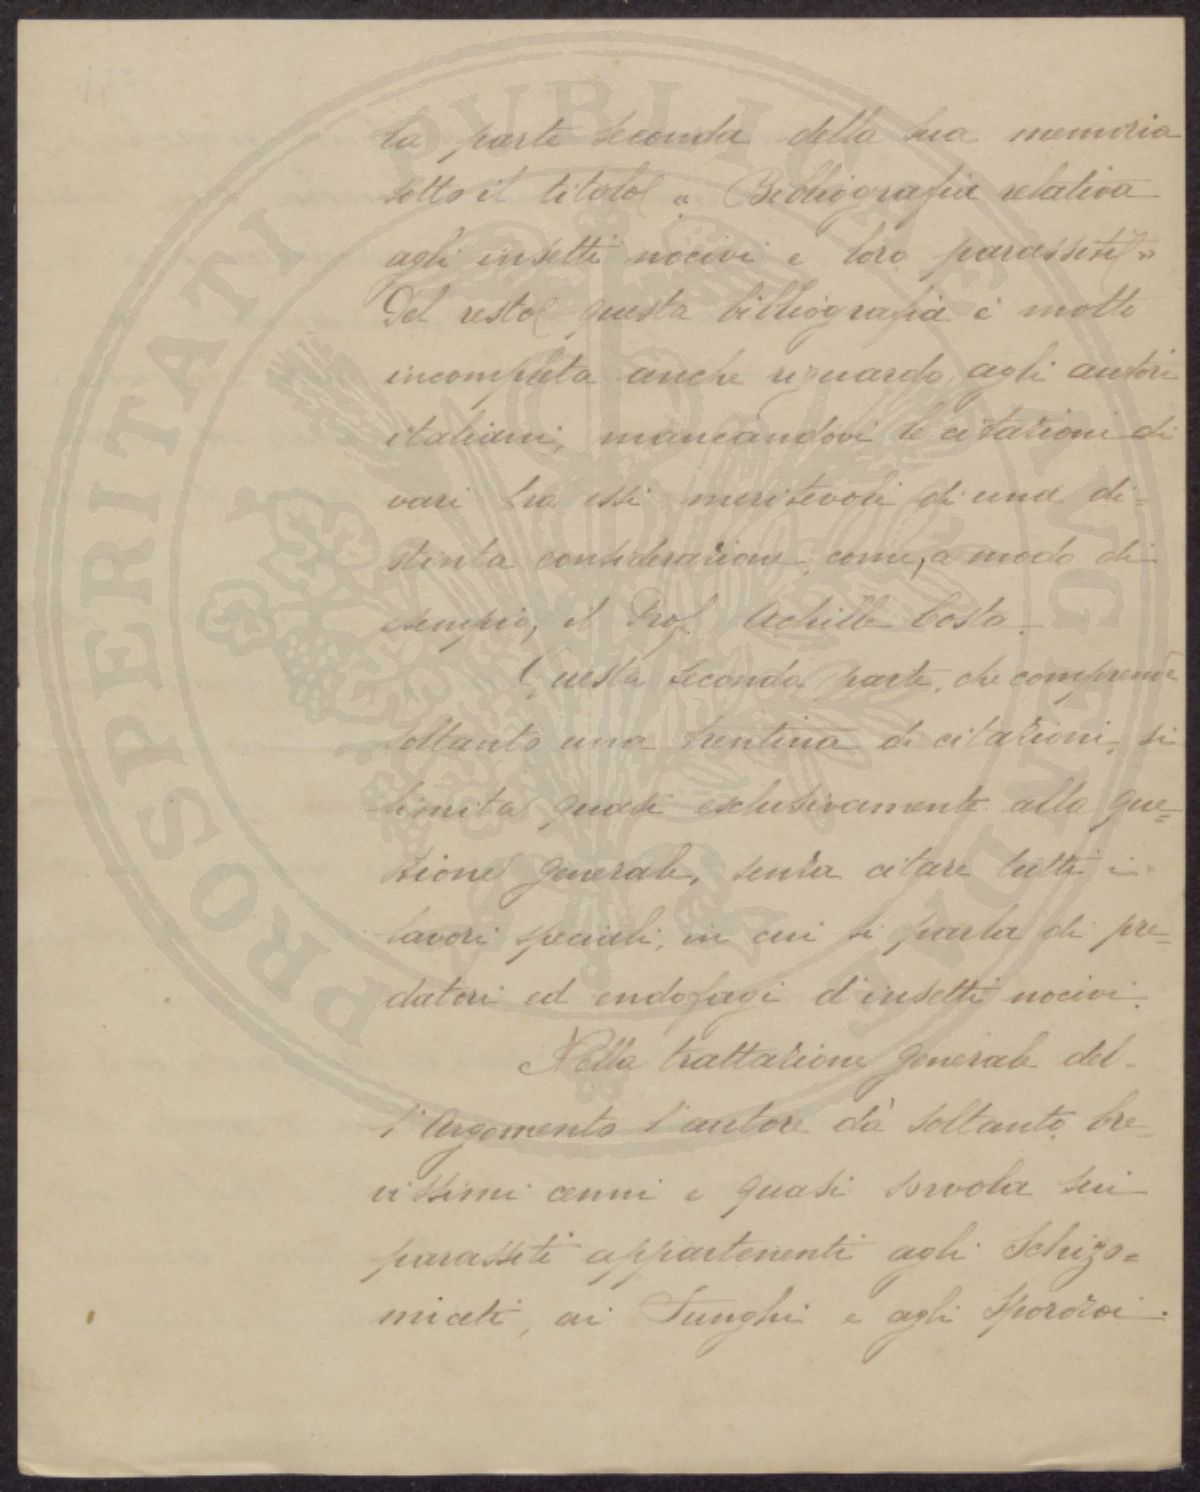 la parte seconda della sua memoria
sotto il titolo « Bibliografia relativa
agli insetti nocivi e loro parassiti »
Del resto questa bibliografia è molto
incompleta anche riguardo agli autori
italiani, mancandovi le citazioni di
vari tra essi meritevoli di una di-
stinta considerazione, come, a modo di
esempio, il Prof. Achille Costa.
Questa seconda parte, che comprende
soltanto una trentina di citazioni, si
limita quasi esclusivamente alla que=
stione generale, senza citare tutti i
lavori speciali, in cui si parla di pre=
datori ed endofagi d'insetti nocivi.
Nella trattazione generale del-
l'Argomento l'autore dà soltanto bre=
vissimi cenni e quasi sorvola sui
parassiti appartenenti agli Schizo=
miceti, ai Funghi e agli Sporozoi.
PROSPERITATI PVBLICAE AVGENDAE